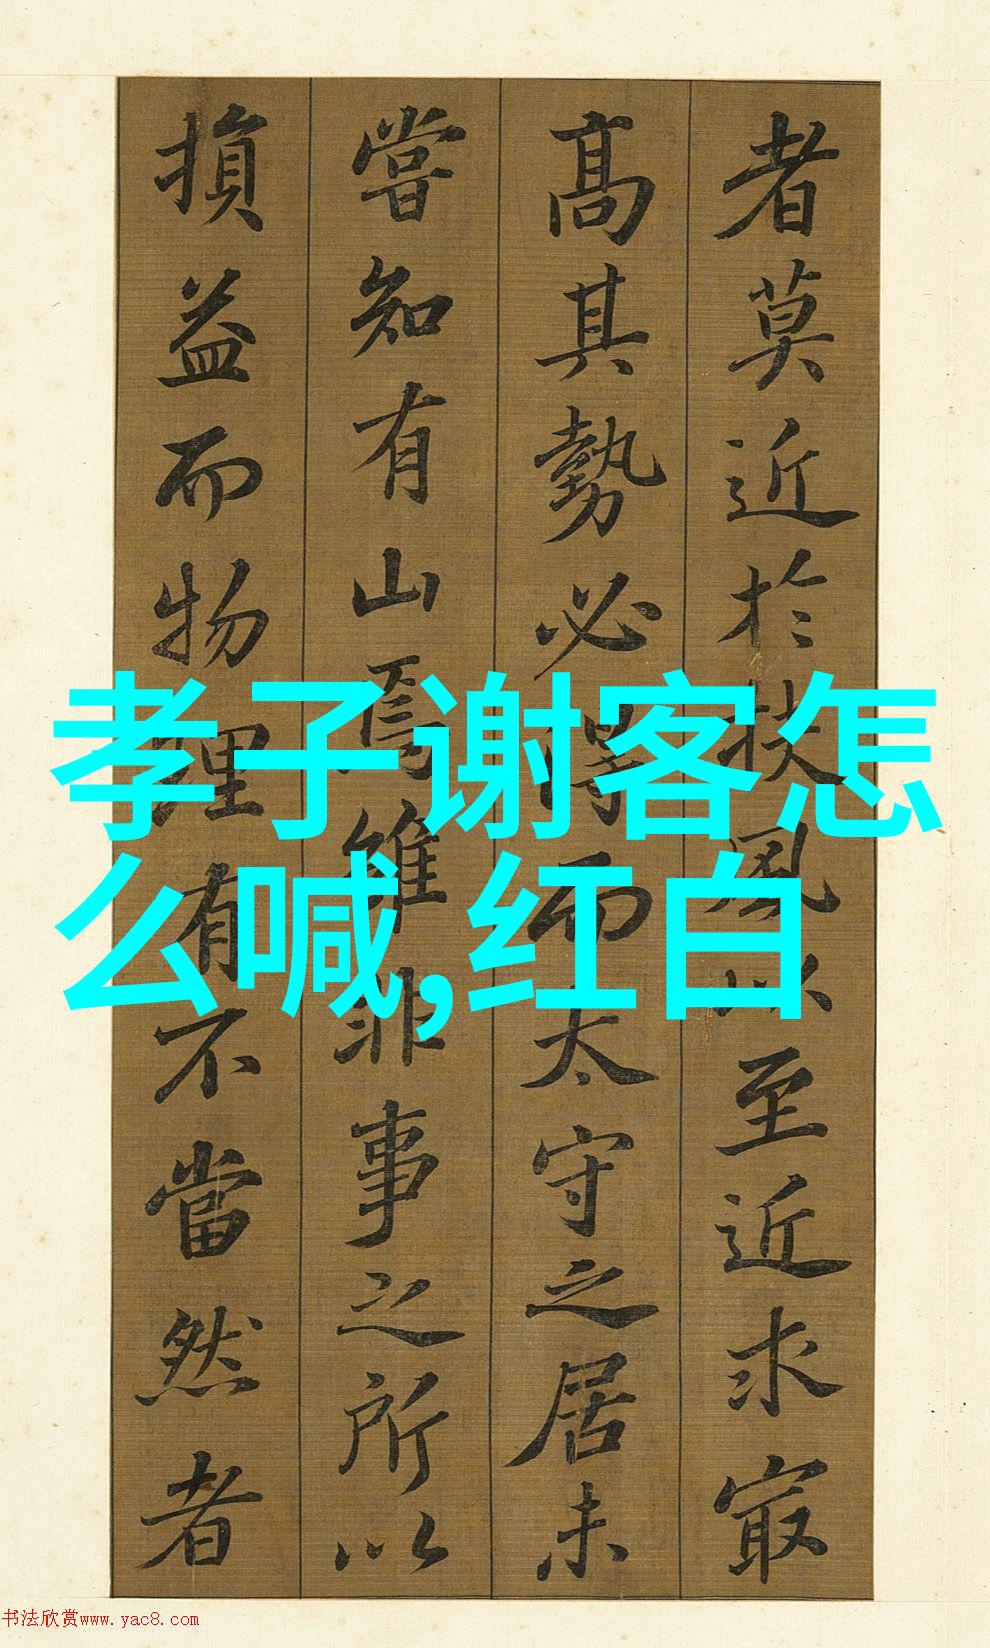 者莫近於扶風以至近求㝡
高其勢必得而太守之居未
嘗知有山焉雖非事之所以
損益而物理有不當然者
孝子谢客怎
么喊,红白
书法欣赏www.yac8.com